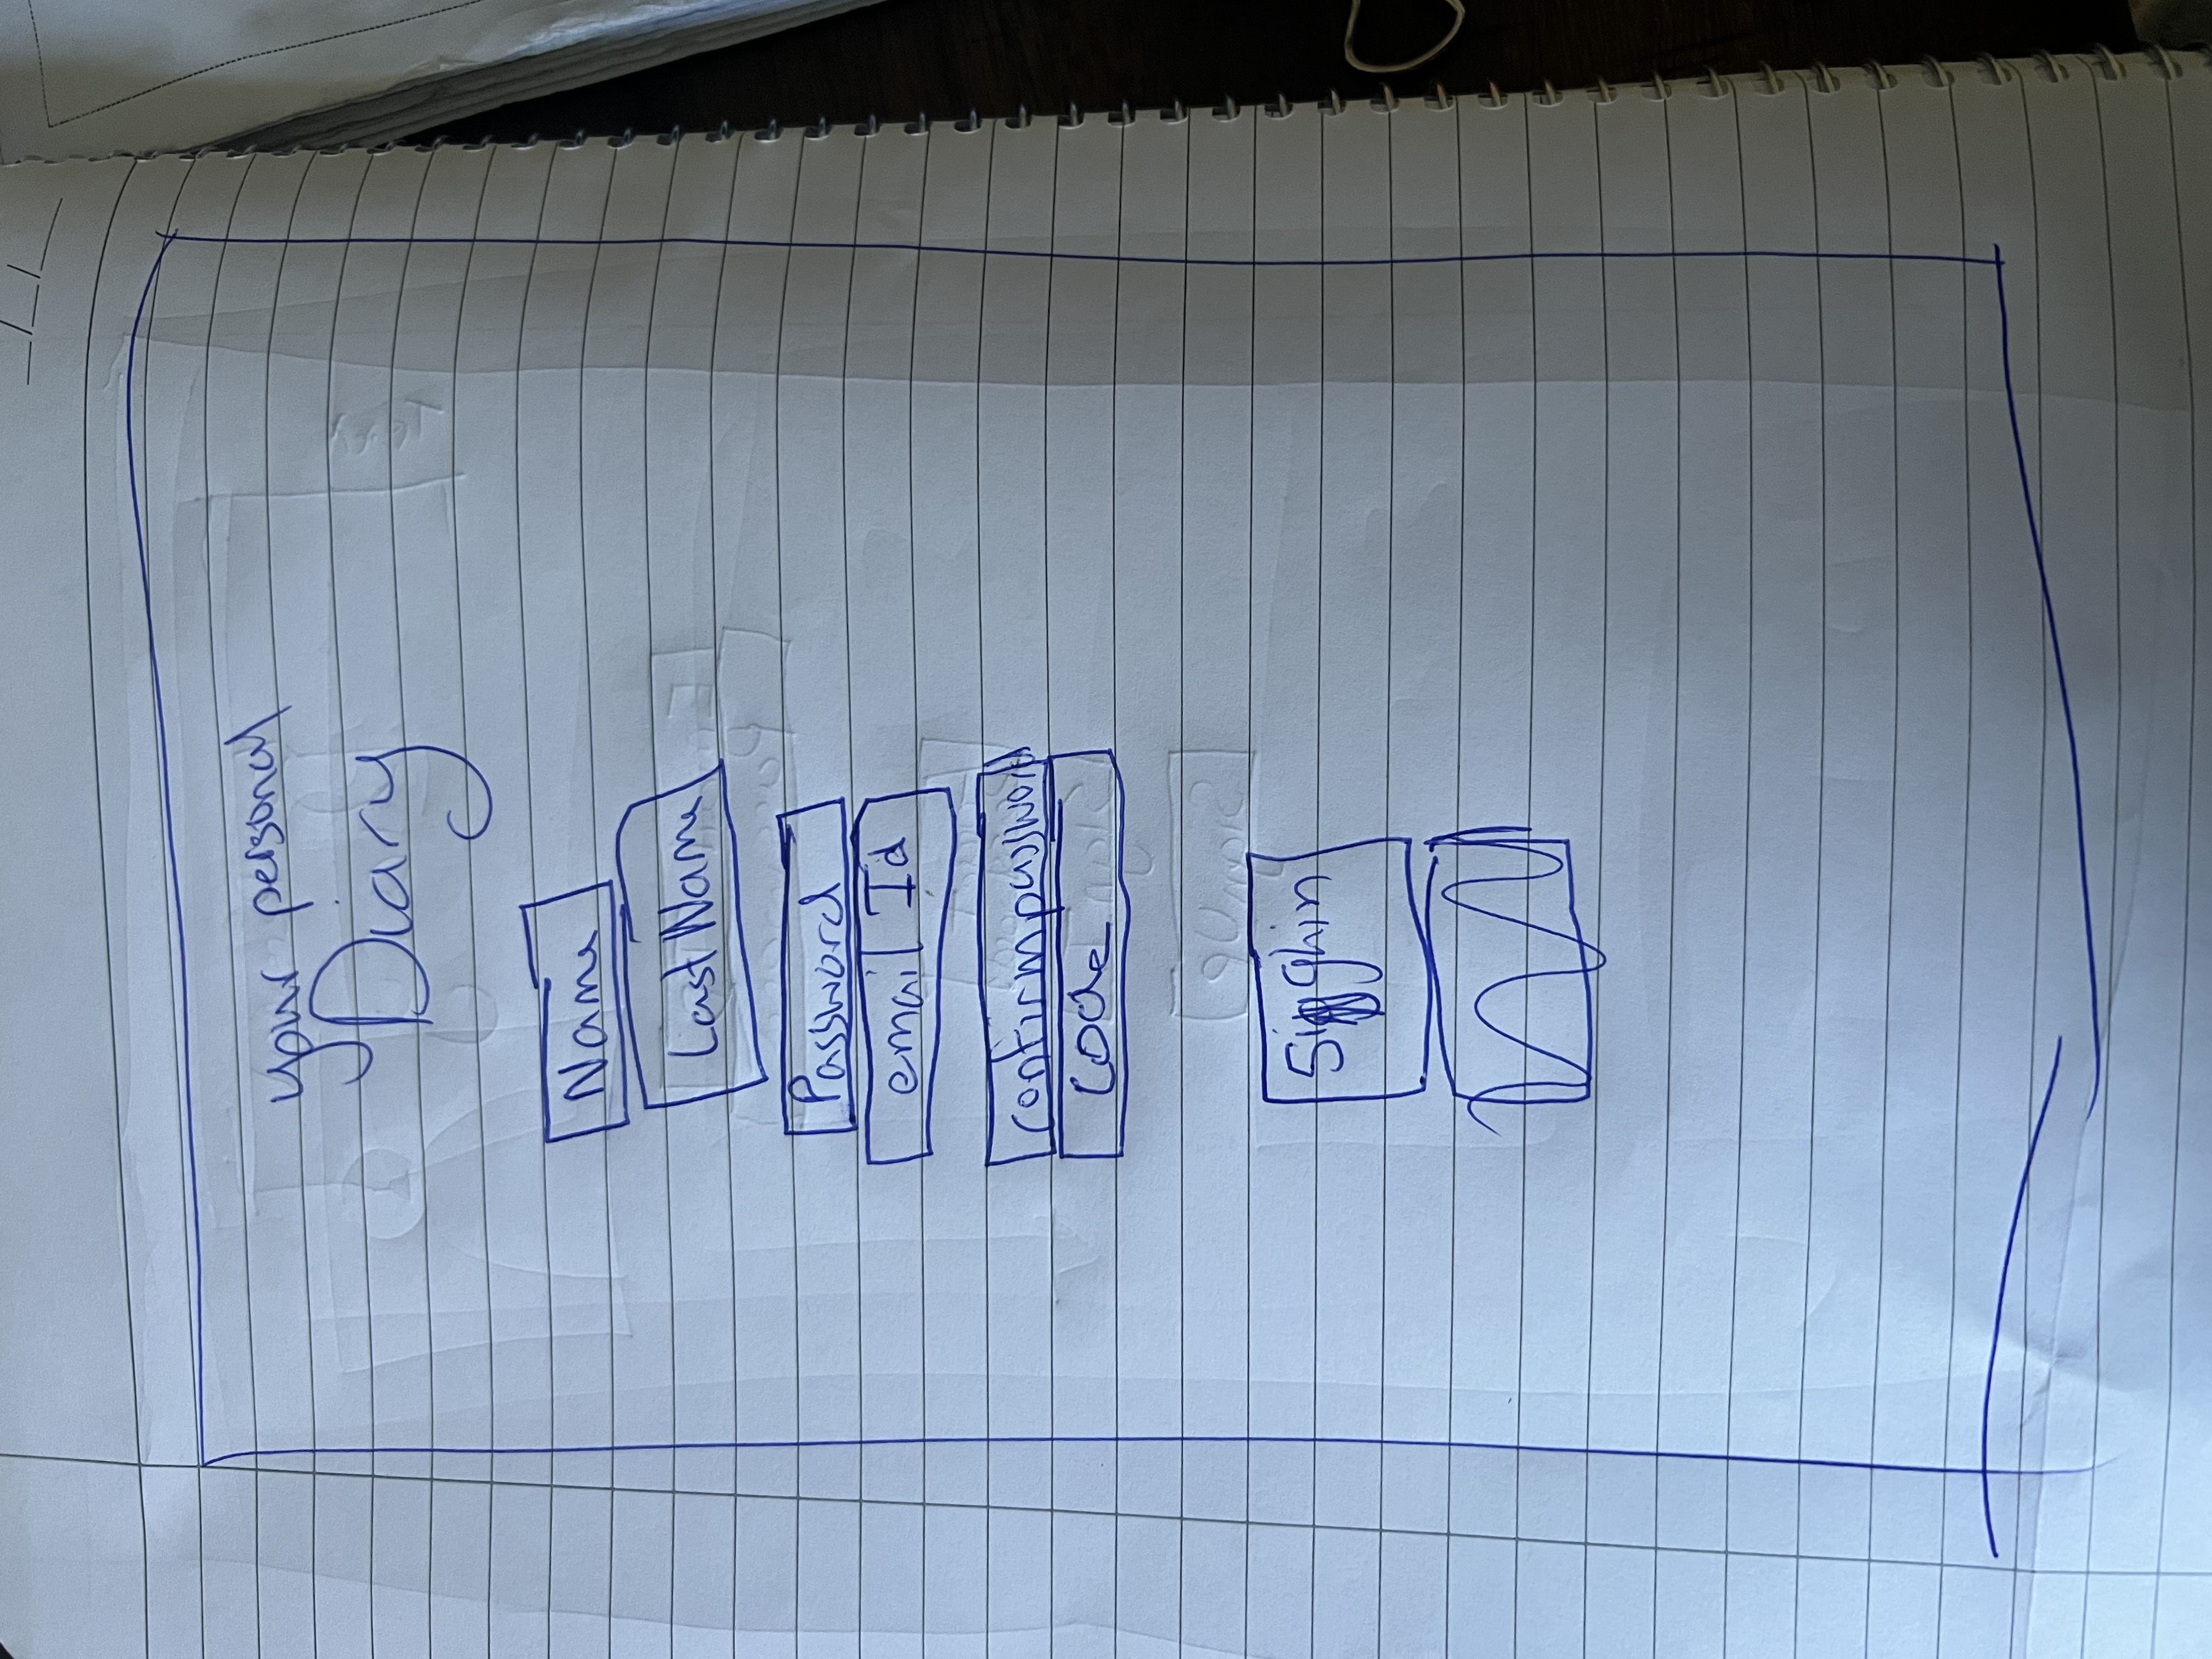 your personal
Diary
Name
Last Name
Password
email Id
Confirmpassword
Code